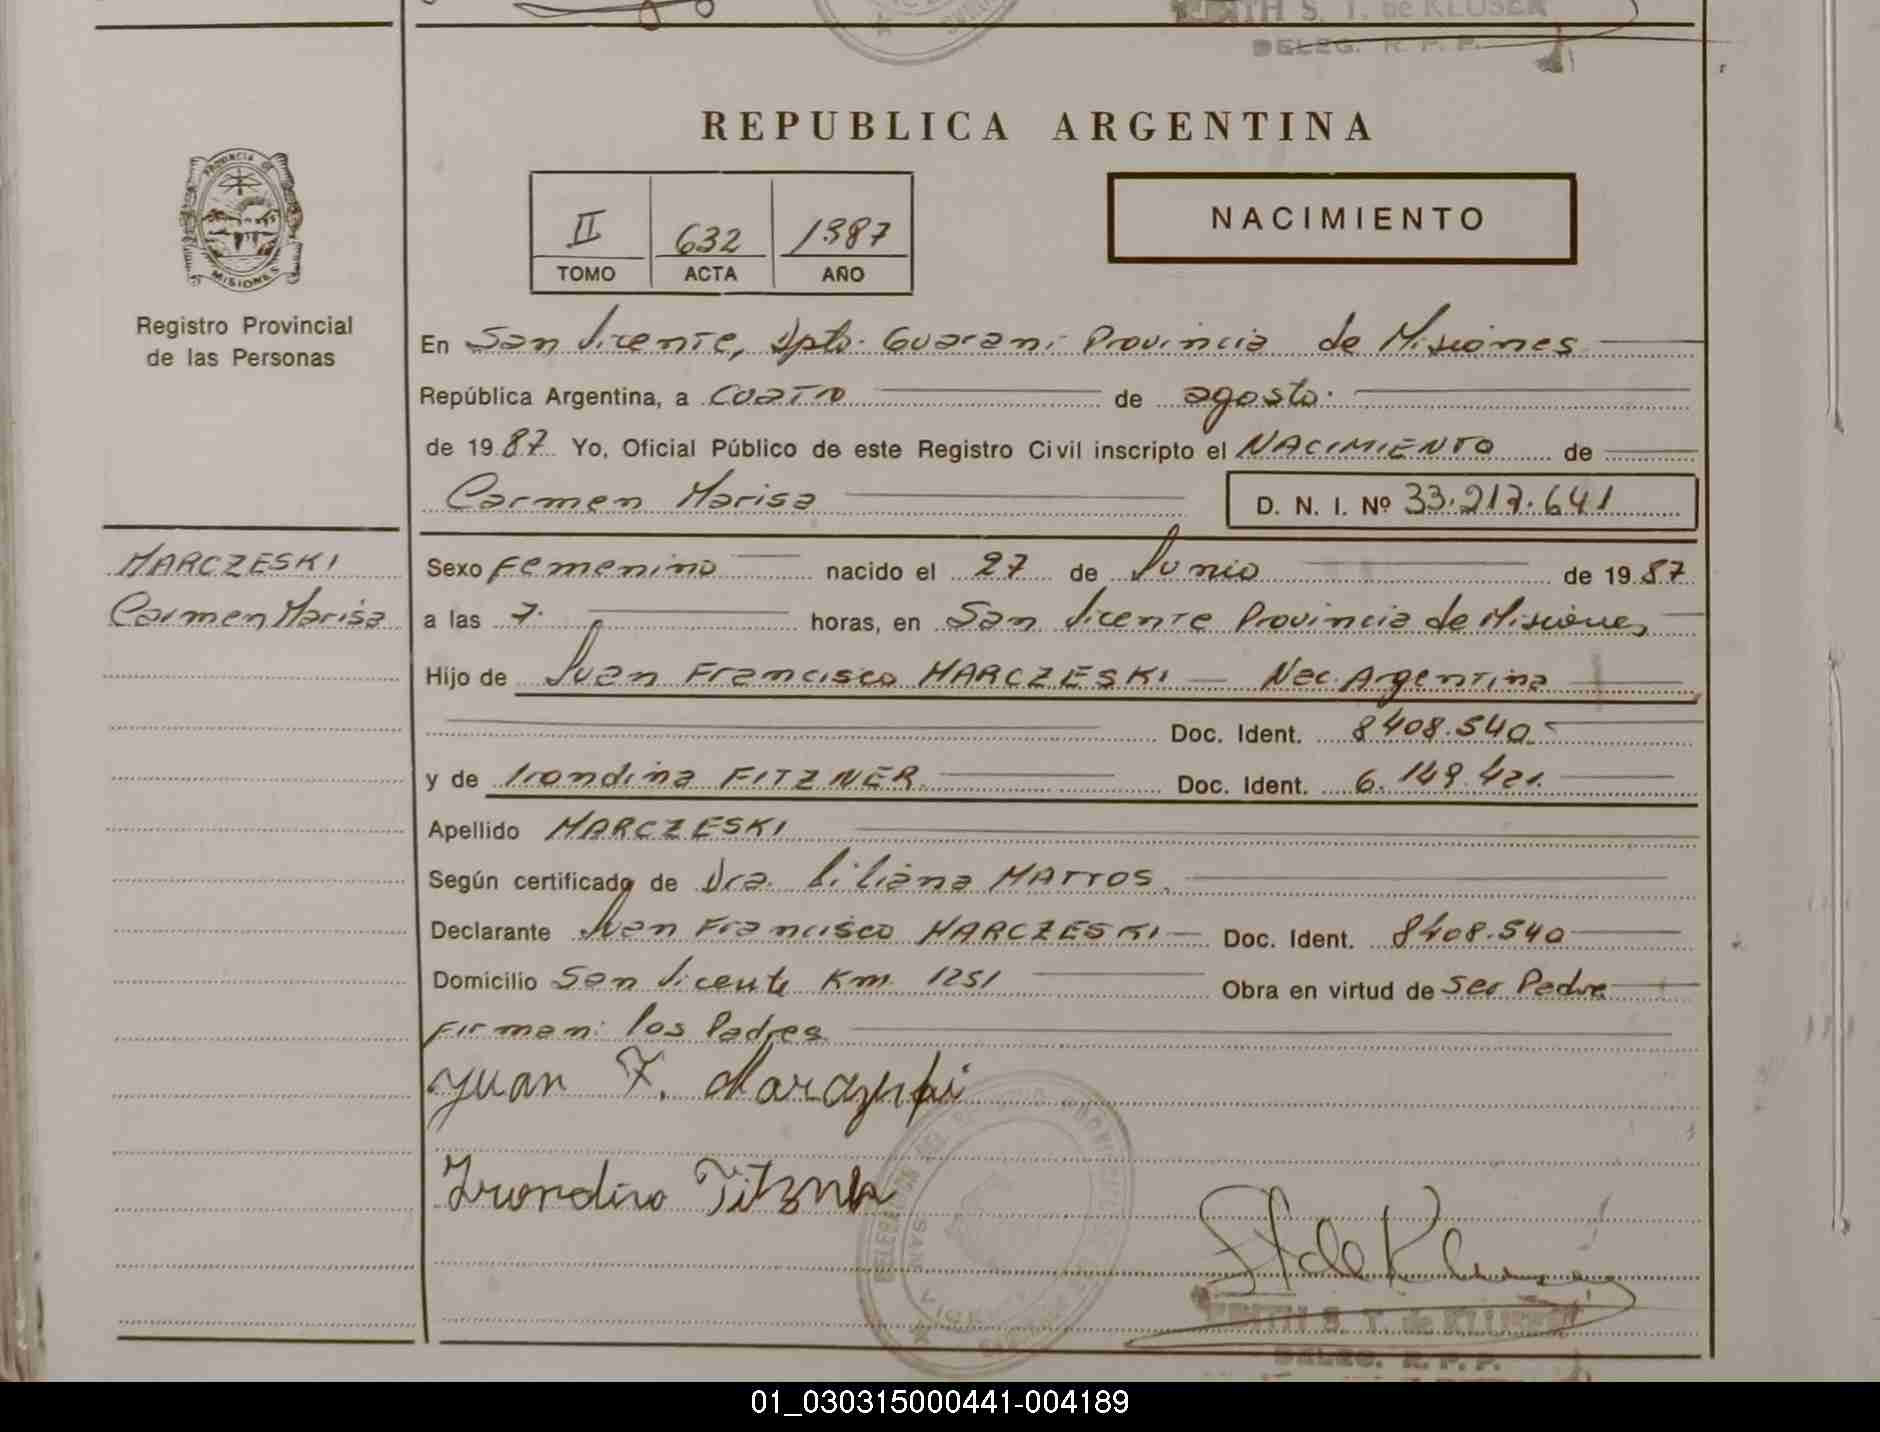 DELEG. R. P. P.
REPUBLICA ARGENTINA
PROVINCIA DE
MISIONES
II
632
1987
TOMO
ACTA
AÑO
NACIMIENTO
Registro Provincial
de las Personas
En San Vicente, Dpto. Guaraní Provincia de Misiones
República Argentina, a cuatro de agosto.
de 19 87 Yo, Oficial Público de este Registro Civil inscripto el NACIMIENTO de
Carmen Marisa
D. N. I. Nº 33.217.641
MARCZESKI
Carmen Marisa
Sexo Femenino nacido el 27 de Junio de 19 87
a las 7. horas, en San Vicente Provincia de Misiones,
Hijo de Juan Francisco MARCZESKI — Nac. Argentina
Doc. Ident. 8408.540
y de Irondina FITZNER. Doc. Ident. 6.149.421.
Apellido MARCZESKI
Según certificado de Dra. Liliana MATTOS.
Declarante Juan Francisco MARCZESKI — Doc. Ident. 8408.540
Domicilio San Vicente Km. 1251 Obra en virtud de Ser Padre
Firman: los Padres
Juan F.
EDITH S. T. de KLUSER
DELEG. R. P. P.
01_030315000441-004189